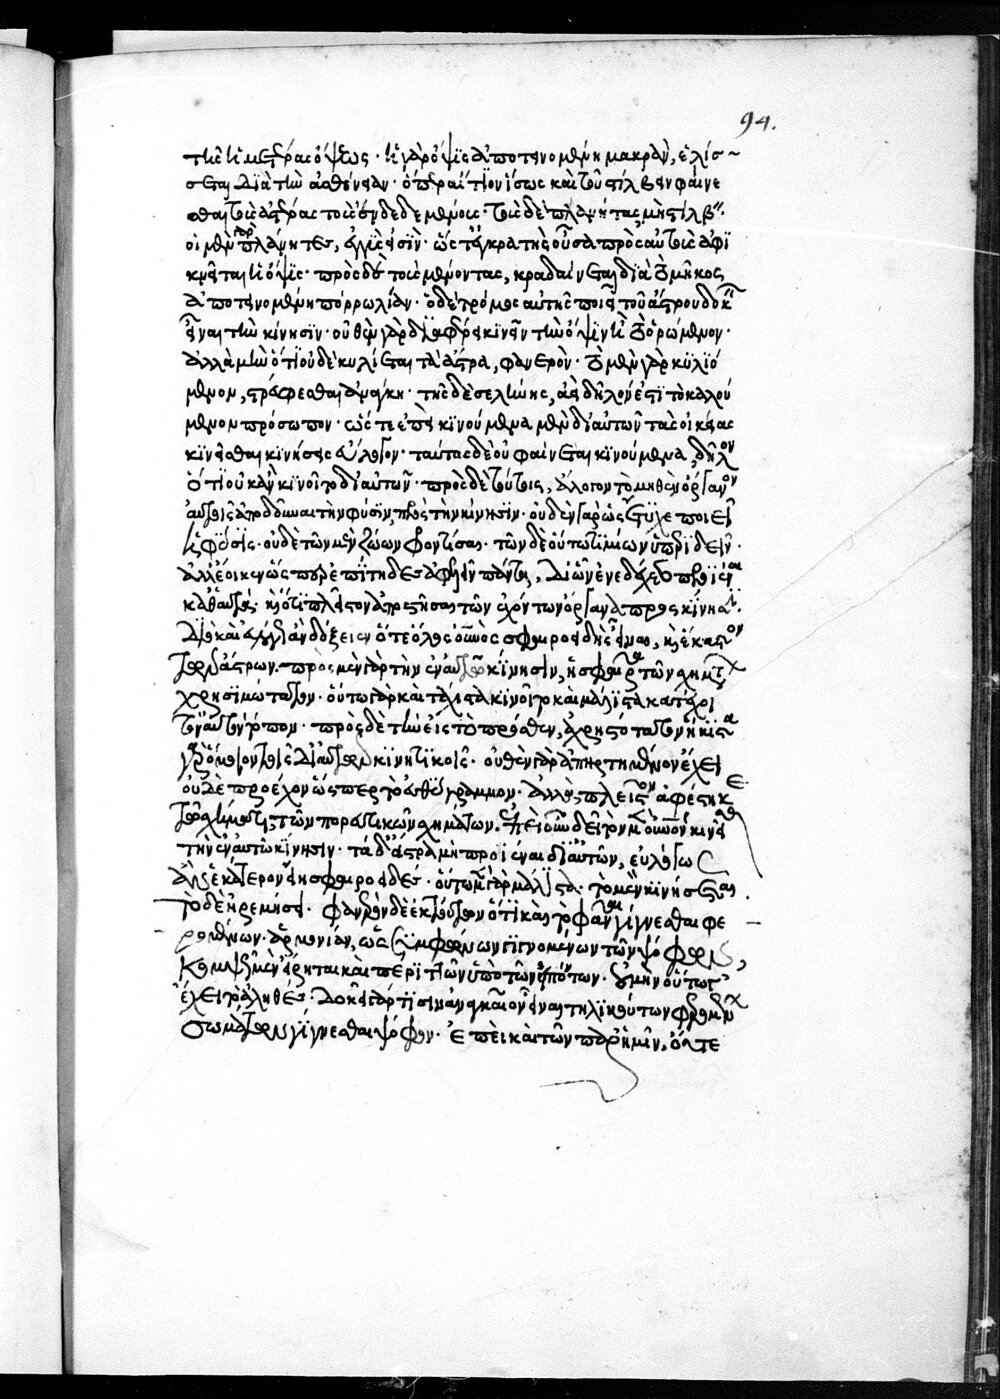 94.
τῆς ἡμετέρας ὄψεως· ἡ γὰρ ὄψις ἀποτεινομένη μακρὰν, ἑλίσ-
σεται διὰ τὴν ἀσθένειαν· ὅπερ αἴτιον ἴσως καὶ τοῦ στίλβειν φαίνε
σθαι τοὺς ἀστέρας τοὺς ἐνδεδεμένους· τοὺς δὲ πλάνητας μὴ στίλβειν·
οἱ μὲν γὰρ πλάνητες, ἐγγύς εἰσὶν· ὥστ' ἐγκρατὴς οὖσα πρὸς αὐτοὺς ἀφι
κνεῖται ἡ ὄψις· πρὸς δὲ τοὺς μένοντας, κραδαίνεται διὰ τὸ μῆκος
ἀποτεινομένη πόρρω λίαν· ὁ δὲ τρόμος αὐτῆς ποιεῖ τοῦ ἄστρου δοκεῖν
εἶναι τὴν κίνησιν· οὐθὲν γὰρ διαφέρει κινεῖν τὴν ὄψιν ἢ τὸ ὁρώμενον·
ἀλλὰ μὴν ὅτι οὐδὲ κυλίεται τὰ ἄστρα, φανερόν· τὸ μὲν γὰρ κυλιό
μενον, στρέφεσθαι ἀνάγκη· τῆς δὲ σελήνης, ἀεὶ δῆλόν ἐστι τὸ καλού
μενον πρόσωπον· ὥστε ἐπεὶ κινούμενα μὲν δι' αὐτῶν τὰς οἰκείας
κινεῖσθαι κινήσεις εὔλογον· ταύτας δὲ οὐ φαίνεται κινούμενα, δῆλον
ὅτι οὐκ ἂν κινοῖτο δι' αὐτῶν· πρὸς δὲ τούτοις, ἄλογον τὸ μηθὲν ὄργανον
αὐτοῖς ἀποδοῦναι τὴν φύσιν, πρὸς τὴν κίνησιν· οὐδὲν γὰρ ὡς ἔτυχε ποιεῖ
ἡ φύσις· οὐδὲ τῶν μὲν ζώων φροντίσαι· τῶν δὲ οὕτω τιμίων ὑπεριδεῖν·
ἀλλ' ἔοικεν ὥσπερ ἐπίτηδες ἀφελεῖν πάντα, δι' ὧν ἐνεδέχετο προϊέναι
καθ' αὑτά· καὶ ὅτι πλεῖστον ἀποστῆσαι τῶν ἐχόντων ὄργανα πρὸς κίνησιν·
διὸ καὶ εὐλόγως ἂν δόξειεν ὅ τε ὅλος οὐρανὸς σφαιροειδὴς εἶναι, καὶ ἕκαστον
τῶν ἄστρων· πρὸς μὲν γὰρ τὴν ἐν αὐτῶ κίνησιν, ἡ σφαῖρα τῶν σχημάτων
χρησιμώτατον· οὕτω γὰρ καὶ τάχιστα κινοῖτο καὶ μάλιστα κατέχοι
τὸν αὐτὸν τόπον· πρὸς δὲ τὴν εἰς τὸ πρόσθεν, ἀχρηστότατον· ἥκιστα
γὰρ ὅμοιον τοῖς δι' αὐτῶν κινητικοῖς· οὐθὲν γὰρ ἀπηρτημένον ἔχει
οὐδὲ προέχον ὥσπερ τὸ εὐθύγραμμον· ἀλλὰ πλεῖστον ἀφέστηκε
τῶ σχήματι τῶν πορευτικῶν σχημάτων. ἐπεὶ οὖν δεῖ τὸν μὲν οὐρανὸν κινεῖσθαι
τὴν ἐν αὐτῶ κίνησιν· τὰ δ' ἄστρα μὴ προϊέναι δι' αὐτῶν, εὐλόγως
ἂν ἑκάτερον εἴη σφαιροειδές· οὕτω γὰρ μάλιστα τὸ μὲν κινήσεται
τὸ δὲ ἠρεμήσει· φανερὸν δὲ ἐκ τούτων ὅτι καὶ τὸ φάναι γίγνεσθαι φε
ρομένων ἁρμονίαν, ὡς συμφώνων γιγνομένων τῶν ψόφων,
κομψῶς μὲν εἴρηται καὶ περιττῶς ὑπὸ τῶν εἰπόντων· οὐ μὴν οὕτως
ἔχει τἀληθές· δοκεῖ γάρ τισιν ἀναγκαῖον εἶναι τηλικούτων φερομένων
σωμάτων γίγνεσθαι ψόφον· ἐπεὶ καὶ τῶν παρ' ἡμῖν, οὔτε